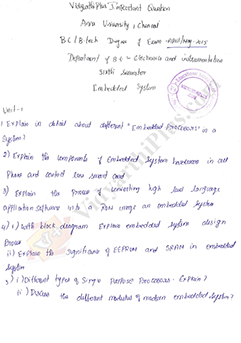 Vidyarthiplus Important Question
Anna University, Chennai
B.E/B.Tech Degree of Exam
Department of B.E - Electronics and instrumentation
Sixth Semester
Embedded System
Unit-1
1 Explain in detail about different "Embedded Processors" in a
System?
2) Explain the components of Embedded System hardware in all
Phase and control low
3) Explain the Process of converting high level language
application software into a ROM image an embedded system
4) i) With block diagram Explain embedded system design
Process
ii) Explain the significance of EEPROM and SRAM in embedded
System
5) i) Different types of Single Purpose Processors - Explain?
ii) Discuss the different modules of modern embedded System?